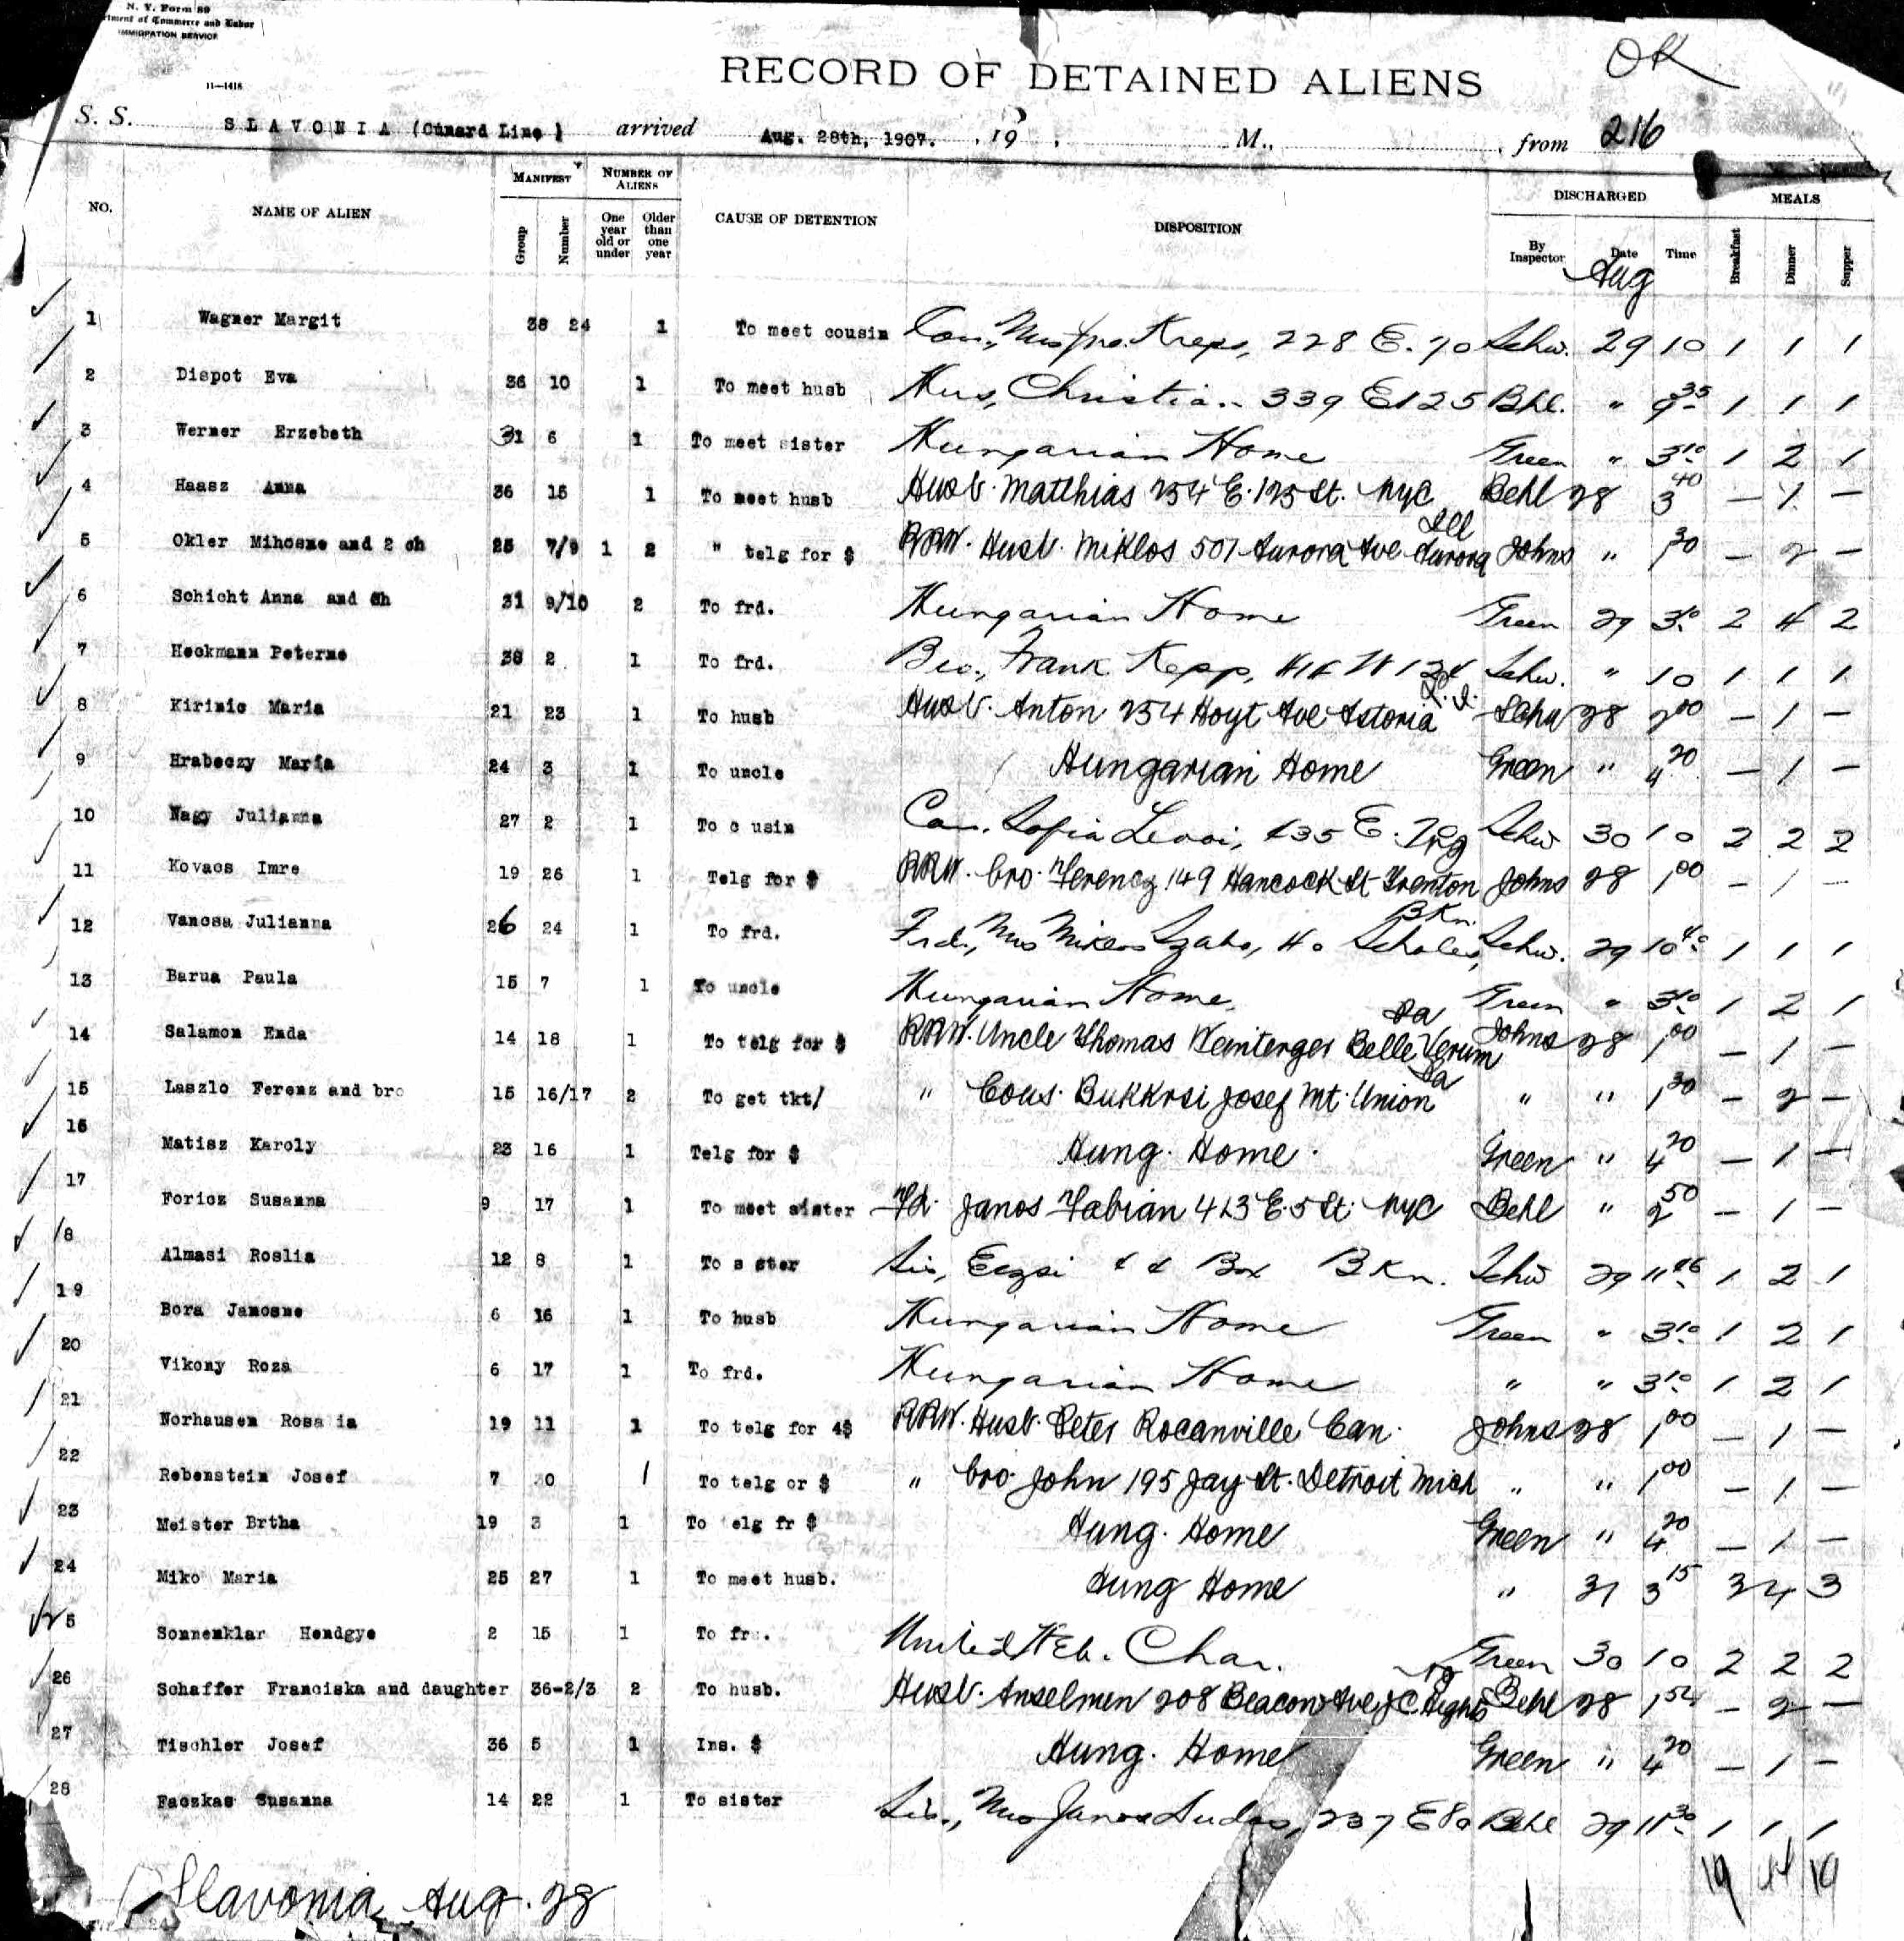 N. Y. Form 89
rtment of Commerce and Labor
IMMIGRATION SERVICE
11—1416
OK
RECORD OF DETAINED ALIENS
S. S. SLAVONIA (Cunard Line) arrived Aug. 28th, 1907. , 19 , M., , from 216
NO. NAME OF ALIEN MANIFEST Group Number NUMBER OF ALIENS One year old or under Older than one year CAUSE OF DETENTION DISPOSITION DISCHARGED By Inspector Date Time MEALS Breakfast Dinner Supper
Aug
1 Wagner Margit 38 24 1 To meet cousin Cou., Mrs Jno. Kreps, 228 E. 70 Schw. 29 10 1 1 1
2 Dispot Eva 36 10 1 To meet husb Hus, Christian 339 E 125 Bhl. " 9 35 1 1 1
3 Werner Erzebeth 31 6 1 To meet sister Hungarian Home Green " 3 10 1 2 1
4 Haasz Anna 36 15 1 To meet husb Husb. Matthias 254 E. 125 St. NYC Behl 28 3 40 — 1 —
5 Okler Mihosne and 2 ch 25 7/9 1 2 " telg for $ RRW. Husb. Miklos 507 Aurora Ave Aurora Ill Johns " 1 30 — 2 —
6 Schicht Anna and ch 31 9/10 2 To frd. Hungarian Home Green 29 3 10 2 4 2
7 Heckmann Peterne 38 2 1 To frd. Bro., Frank Kepp, W 124 Schw. " 10 1 1 1
8 Kirinic Maria 21 23 1 To husb Husb. Anton 254 Hoyt Ave Astoria L. I. Schw 28 2 00 — 1 —
9 Hrabeczy Maria 24 3 1 To uncle Hungarian Home Green " 4 20 — 1 —
10 Nagy Julianna 27 2 1 To c usin Cou. Sofia 435 E. 70 Schw 30 10 2 2 2
11 Kovacs Imre 19 26 1 Telg for $ RRW. bro. Ferencz 149 Hancock St Trenton NJ Johns 28 1 00 — 1 —
12 Vancsa Julianna 26 24 1 To frd. Frd., Mrs Miklos Szabo, 40 Scholes, Bkn. Schw. 29 10 40 1 1 1
13 Barua Paula 15 7 1 To uncle Hungarian Home, Green " 3 10 1 2 1
14 Salamon Enda 14 18 1 To telg for $ RRW. Uncle Thomas Weinterger Belle Verum Pa Johns 28 1 00 — 1 —
15 Laszlo Ferenz and bro 15 16/17 2 To get tkt/ " Cous. Bukkrsi Josef Mt. Union Pa " " 1 30 — 2 —
16 Matisz Karoly 23 16 1 Telg for $ Hung. Home. Green " 4 20 — 1 —
17 Foricz Susanna 9 17 1 To meet sister Fd. Janos Fabian 413 E. 5 St. NYC Behl " 2 50 — 1 —
18 Almasi Roslia 12 8 1 To s ster Sis, Box Bkn. Schw 29 11 1 2 1
19 Bora Janosne 6 16 1 To husb Hungarian Home Green " 3 10 1 2 1
20 Vikony Roza 6 17 1 To frd. Hungarian Home " " 3 10 1 2 1
21 Norhausen Rosa ia 19 11 1 To telg for 4$ RRW. Husb. Peter Rocanville Can. Johns 28 1 00 — 1 —
22 Rebenstein Josef 7 30 1 To telg or $ " bro. John 195 Jay St. Detroit Mich " " 1 00 — 1 —
23 Meister Brtha 19 3 1 To elg fr $ Hung. Home Green " 4 20 — 1 —
24 Miko Maria 25 27 1 To meet husb. Hung Home " 31 3 15 3 4 3
25 Sonnenklar Hendgye 2 15 1 To fr . United Heb. Char. Green 30 10 2 2 2
26 Schaffer Franciska and daughter 36-2/3 2 To husb. Husb. Anselmen 208 Beacon Ave J C. Hights NJ Behl 28 1 54 — 2 —
27 Tischler Josef 36 5 1 Ins. $ Hung. Home Green " 4 20 — 1 —
28 Faczkas Susanna 14 22 1 To sister Sis., Mrs Janos Sudas, 237 E 80 Behl 29 11 30 1 1 1
19 19
Slavonia Aug. 28